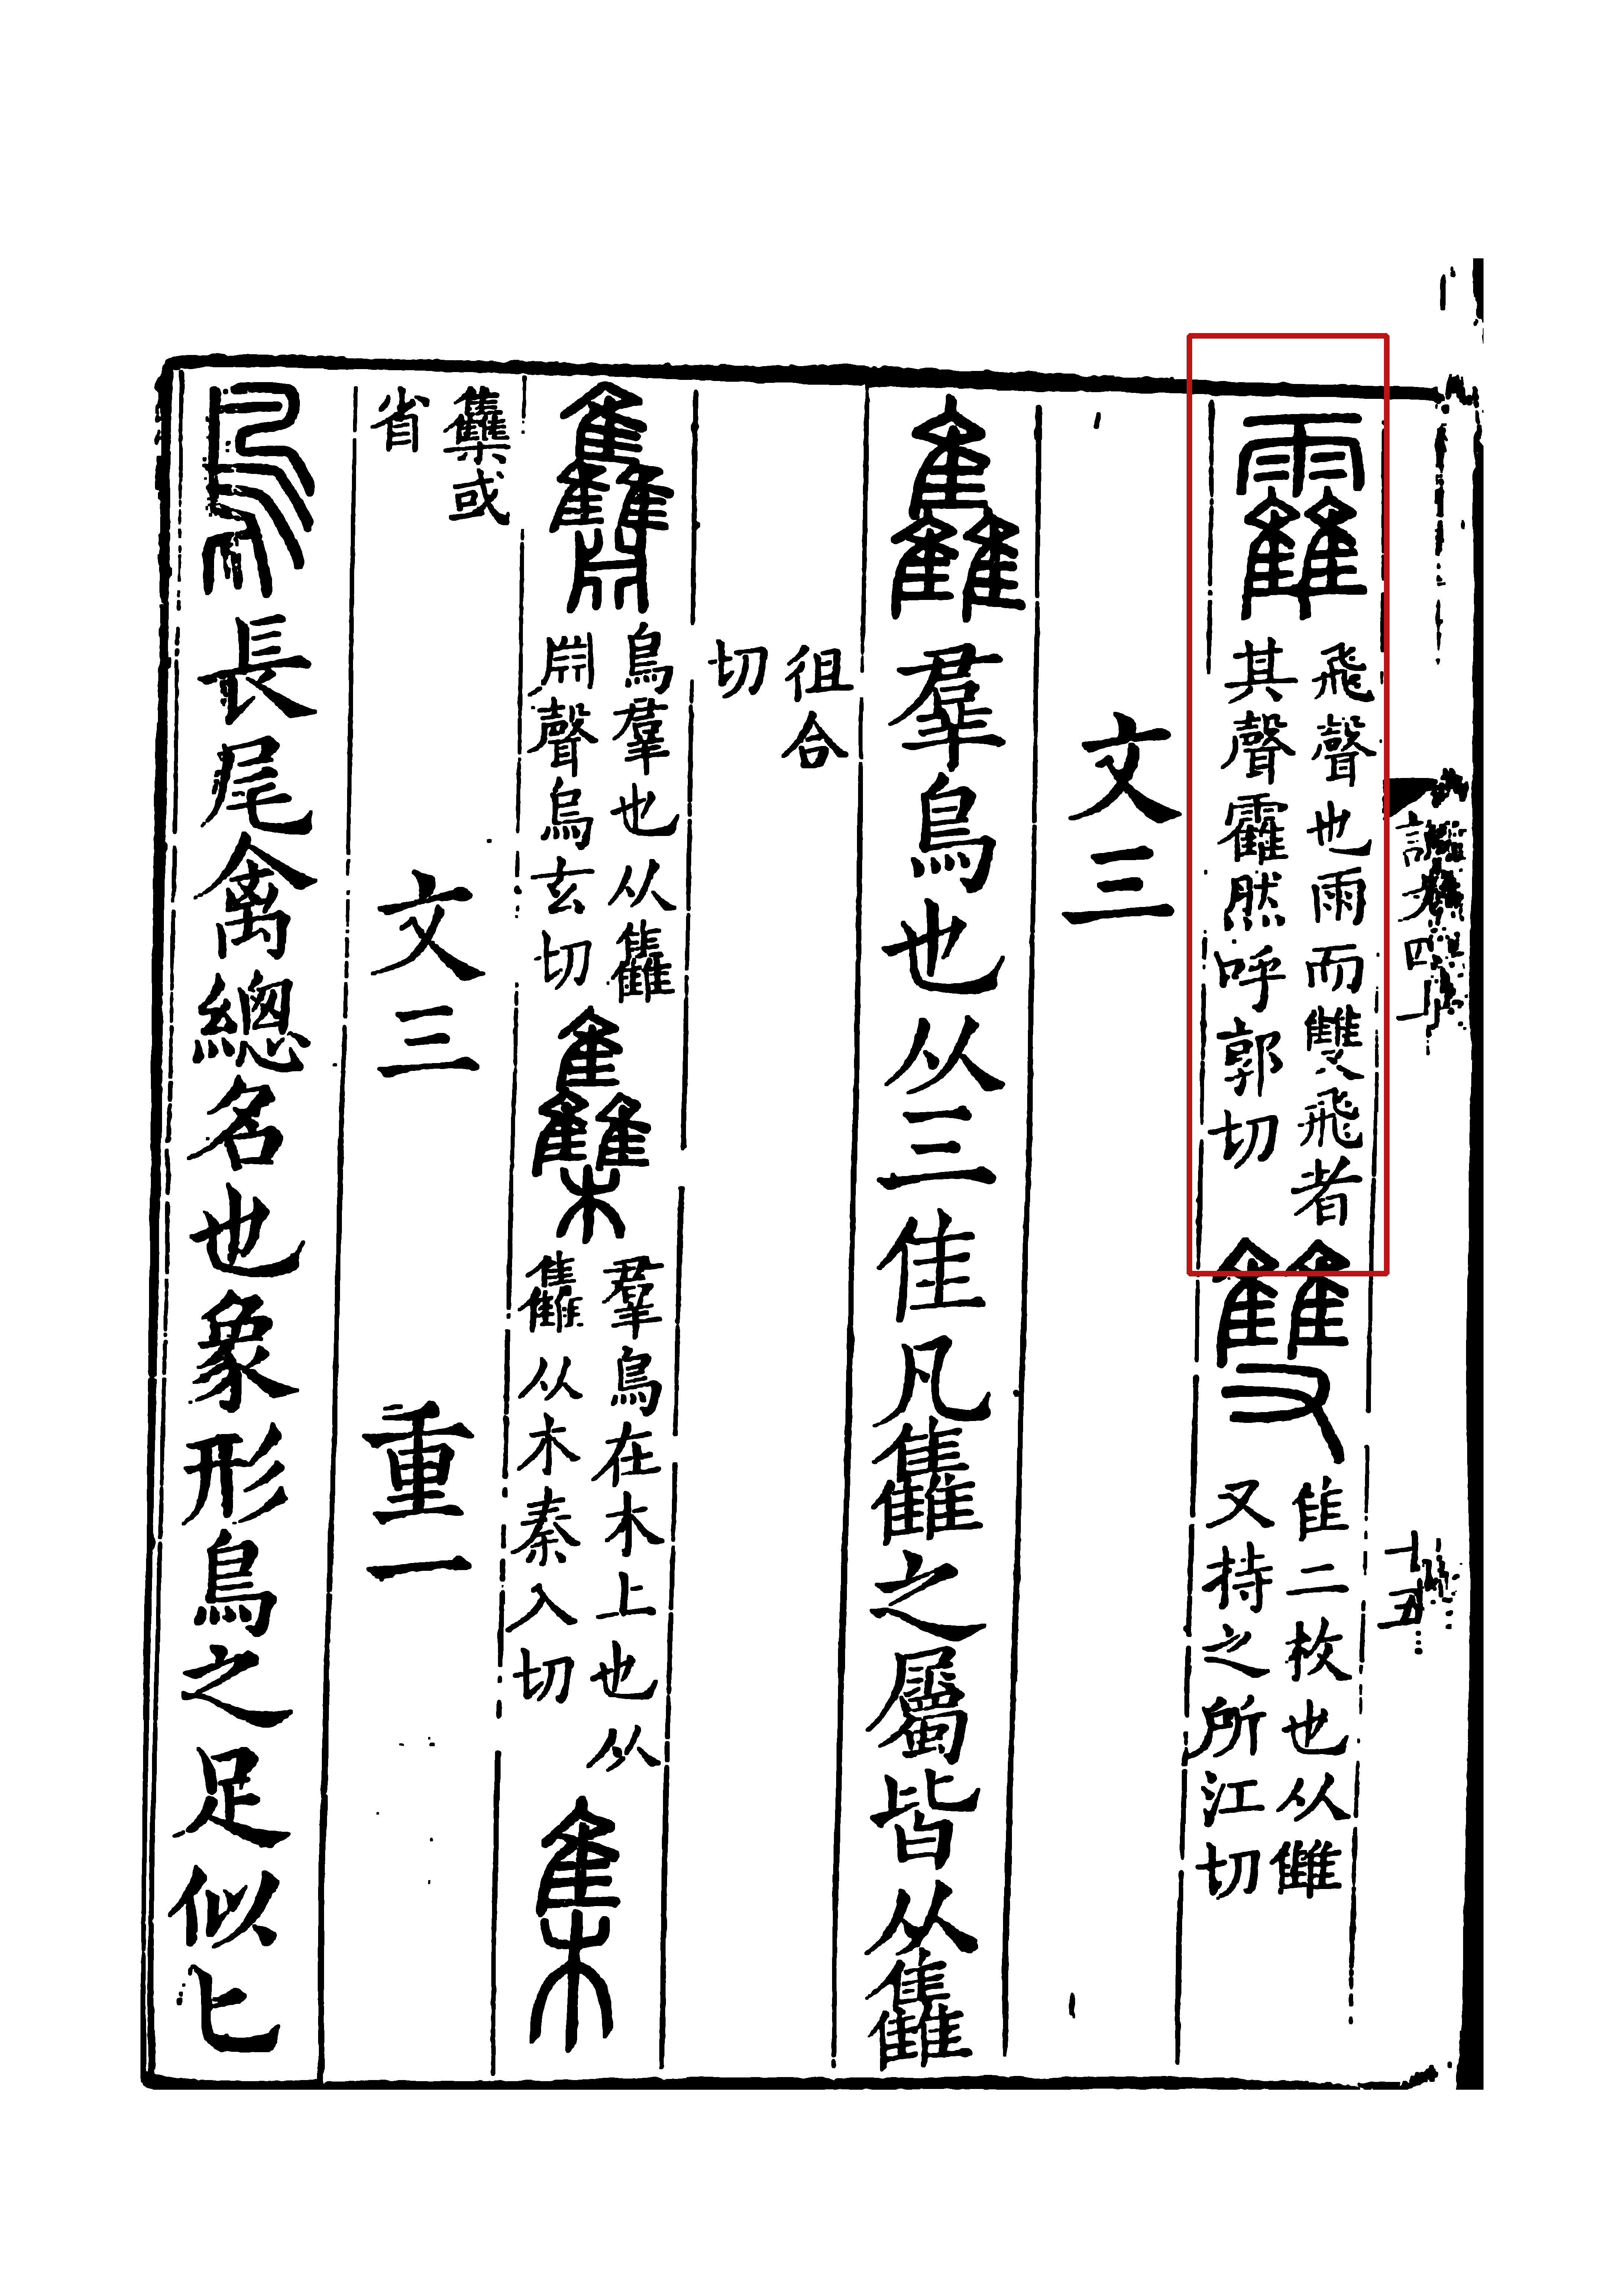 說文四上
十五
靃
飛聲也雨而雙飛者
其聲靃然呼郭切
雙
隹二枚也从雔
又持之所江切
文三
雥羣鳥也从三隹凡雥之屬皆从雥
徂合
切
鳥羣也从雥
𣶒聲烏玄切
雧
羣鳥在木上也从
雥从木秦入切
集
雧或
省
文三 重一
鳥長尾禽總名也象形鳥之足似匕